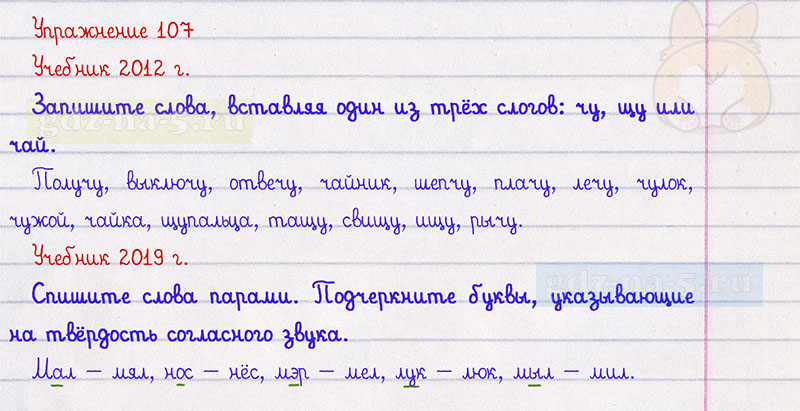 Упражнение 107
Учебник 2012 г.
Запишите слова, вставляя один из трёх слогов: чу, щу или
чай.
Получу, выключу, отвечу, чайник, шепчу, плачу, лечу, чулок,
чужой, чайка, щупальца, тащу, свищу, ищу, рычу.
Учебник 2019 г.
Спишите слова парами. Подчеркните буквы, указывающие
на твёрдость согласного звука.
Мал – мял, нос – нёс, мэр – мел, лук – люк, мыл – мил.
gdz-na-5.ru
gdz-na-5.ru